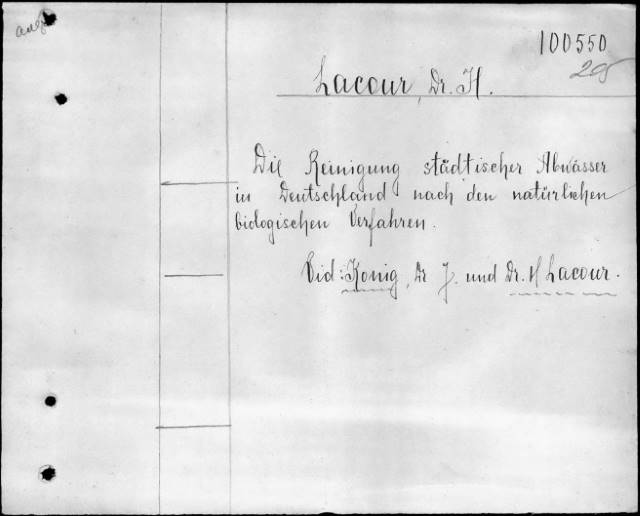 100550
205
Lacour, Dr. H.
Die Reinigung städtischer Abwässer
in Deutschland nach den natürlichen
biologischen Verfahren.
Vid: König, Dr J. und Dr. H Lacour.